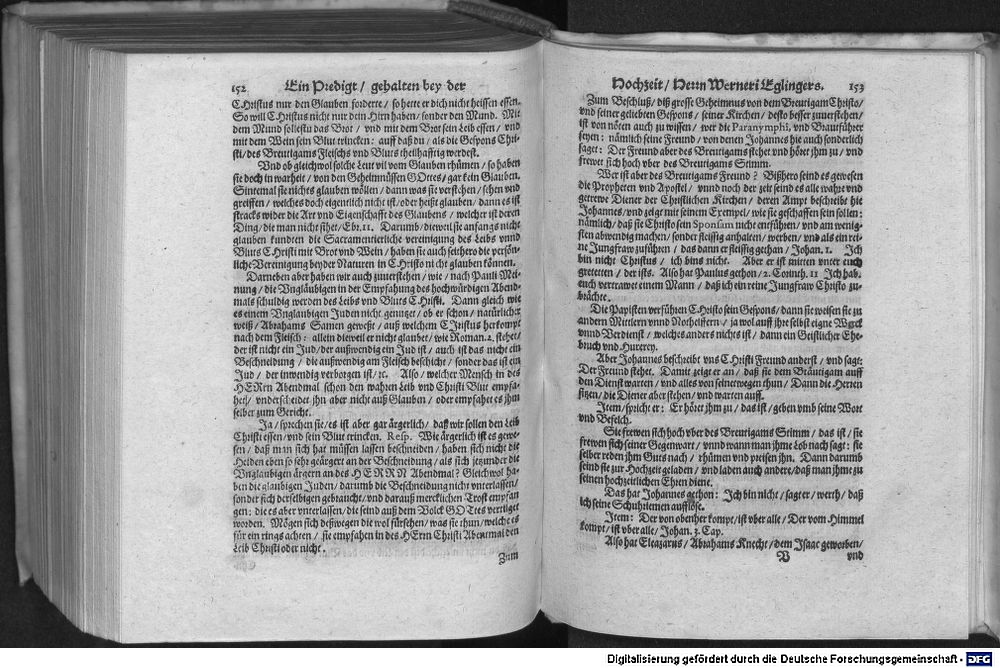 152 Ein Predigt / gehalten bey der
CHristus nur den Glauben forderte / so hette er dich nicht heissen essen.
So will CHristus nicht nur dein Hirn haben / sonder den Mund. Mit
dem Mund solleſtu das Brot / vnd mit dem Brot sein Leib essen / vnd
mit dem Wein sein Blut trincken: auff daß du / als die Gespons Chri-
sti / des Breutigams Fleischs vnd Bluts theilhafftig werdest.
Vnd ob gleichwol solche Leut vil vom Glauben rhümen / so haben
sie doch in warheit / von den Geheimnüssen GOttes / gar kein Glauben.
Sintemal sie nichts glauben wöllen / dann was sie verstehen / sehen vnd
greiffen / welches doch eigentlich nicht ist / oder heißt glauben / dann es ist
stracks wider die Art vnd Eigenschafft des Glaubens / welcher ist deren
Ding / die man nicht sihet / Ebr. 11. Darumb / dieweil sie anfangs nicht
glauben kundten die Sacramentierliche vereinigung des Leibs vnnd
Bluts CHristi mit Brot vnd Wein / haben sie auch seithero die persön-
liche Vereinigung beyder Naturen in CHristo nicht glauben können.
Darneben aber haben wir auch zuuerstehen / wie / nach Pauli Mei-
nung / die Vngläubigen in der Empfahung des hochwürdigen Abend-
mals schuldig werden des Leibs vnd Bluts CHristi. Dann gleich wie
es einem Vnglaubigen Juden nicht genutzet / ob er schon / natürlicher
weiß / Abrahams Samen geweßt / auß welchem CHristus herkompt
nach dem Fleisch: allein dieweil er nicht glaubet / wie Roman. 2. stehet /
der ist nicht ein Jud / der außwendig ein Jud ist / auch ist das nicht ein
Beschneidung / die außwendig am Fleisch beschicht / sonder das ist ein
Jud / der inwendig verborgen ist / ꝛc. Also / welcher Mensch in des
HERrn Abendmal schon den wahren Leib vnd Christi Blut empfa-
het / vnderscheidet jhn aber nicht auß Glauben / oder empfahet es jhm
selber zum Gericht.
Ja / sprechen sie / es ist aber gar ärgerlich / daß wir sollen den Leib
Christi essen / vnd sein Blut trincken. Resp. Wie ärgerlich ist es gewe-
sen / daß man sich hat müssen lassen beschneiden / haben sich nicht die
Heiden eben so sehr geärgert an der Beschneidung / als sich jetzunder die
Vnglaubigen ärgern an des HERRN Abendmal? Gleichwol ha-
ben die glaubigen Juden / darumb die Beschneidung nicht vnterlassen /
sonder sich derselbigen gebraucht / vnd darauß mercklichen Trost empfan
gen: die es aber vnterlassen / die seind auß dem Volck GOttes vertilget
worden. Mögen sich deßwegen die wol fürsehen / was sie thun / welche es
für ein rings achten / sie empfahen in des HErrn Christi Abentmal den
Leib Christi oder nicht.
Zum
Hochzeit / Herrn Werneri Eglingers. 153
Zum Beschluß / diß grosse Geheimnus von dem Breutigam Christo /
vnd seiner geliebten Gespons / seiner Kirchen / desto besser zuuerstehen /
ist von nöten auch zu wissen / wer die Paranymphi, vnd Brautführer
seyen: nämlich seine Freund / von denen Johannes hie auch sonderlich
saget: Der Freund aber des Breutigams stehet vnd höret jhm zu / vnd
frewet sich hoch vber des Breutigams Stimm.
Wer ist aber des Breutigams Freund? Bißhero seind es gewesen
die Propheten vnd Apostel / vnnd noch der zeit seind es alle wahre vnd
getrewe Diener der Christlichen Kirchen / deren Ampt beschreibt hie
Johannes / vnd zeigt mit seinem Exempel / wie sie geschaffen sein sollen:
nämlich / daß sie Christo sein Sponsam nicht entführen / vnd am wenig-
sten abwendig machen / sonder fleissig anhalten / werben / vnd als ein rei-
ne Jungfraw zuführen / das dann er fleissig gethan / Johan. 1. Ich
bin nicht Christus / ich bins nicht. Aber er ist mitten vnter euch
gretretten / der ists. Also hat Paulus gethon / 2. Corinth. 11 Ich hab
euch vertrawet einem Mann / daß ich ein reine Jungfraw Christo zu-
brächte.
Die Papisten verführen CHristo sein Gespons / dann sie weisen sie zu
andern Mittlern vnnd Nothelffern / ja wol auff jhre selbst eigne Werck
vnnd Verdienst / welches anders nichts ist / dann ein Geistlicher Ehe-
bruch vnd Hurerey.
Aber Johannes beschreibt vns CHristi Freund anderst / vnd sagt:
Der Freund stehet. Damit zeigt er an / daß sie dem Bräutigam auff
den Dienst warten / vnd alles von seinetwegen thun / Dann die Herren
sitzen / die Diener aber stehen / vnd warten auff.
Item / spricht er: Er höret jhm zu / das ist / geben vmb seine Wort
vnd Befelch.
Sie frewen sich hoch vber des Breutigams Stimm / das ist / sie
frewen sich seiner Gegenwart / vnnd wann man jhme Lob nach sagt: sie
selber reden jhm Gues nach / rhümen vnd preisen jhn. Dann darumb
seind sie zur Hochzeit geladen / vnd laden auch andere / daß man jhme zu
seinen hochzeitlichen Ehren diene.
Das hat Johannes gethon: Ich bin nicht / sagt er / werth / daß
ich seine Schuhriemen aufflöse.
Item: Der von obenher kompt / ist vber alle / Der vom Himmel
kompt / ist vber alle / Johan. 3. Cap.
Also hat Eleazarus / Abrahams Knecht / dem Isaac geworben /
V vnd
Digitalisierung gefördert durch die Deutsche Forschungsgemeinschaft - DFG